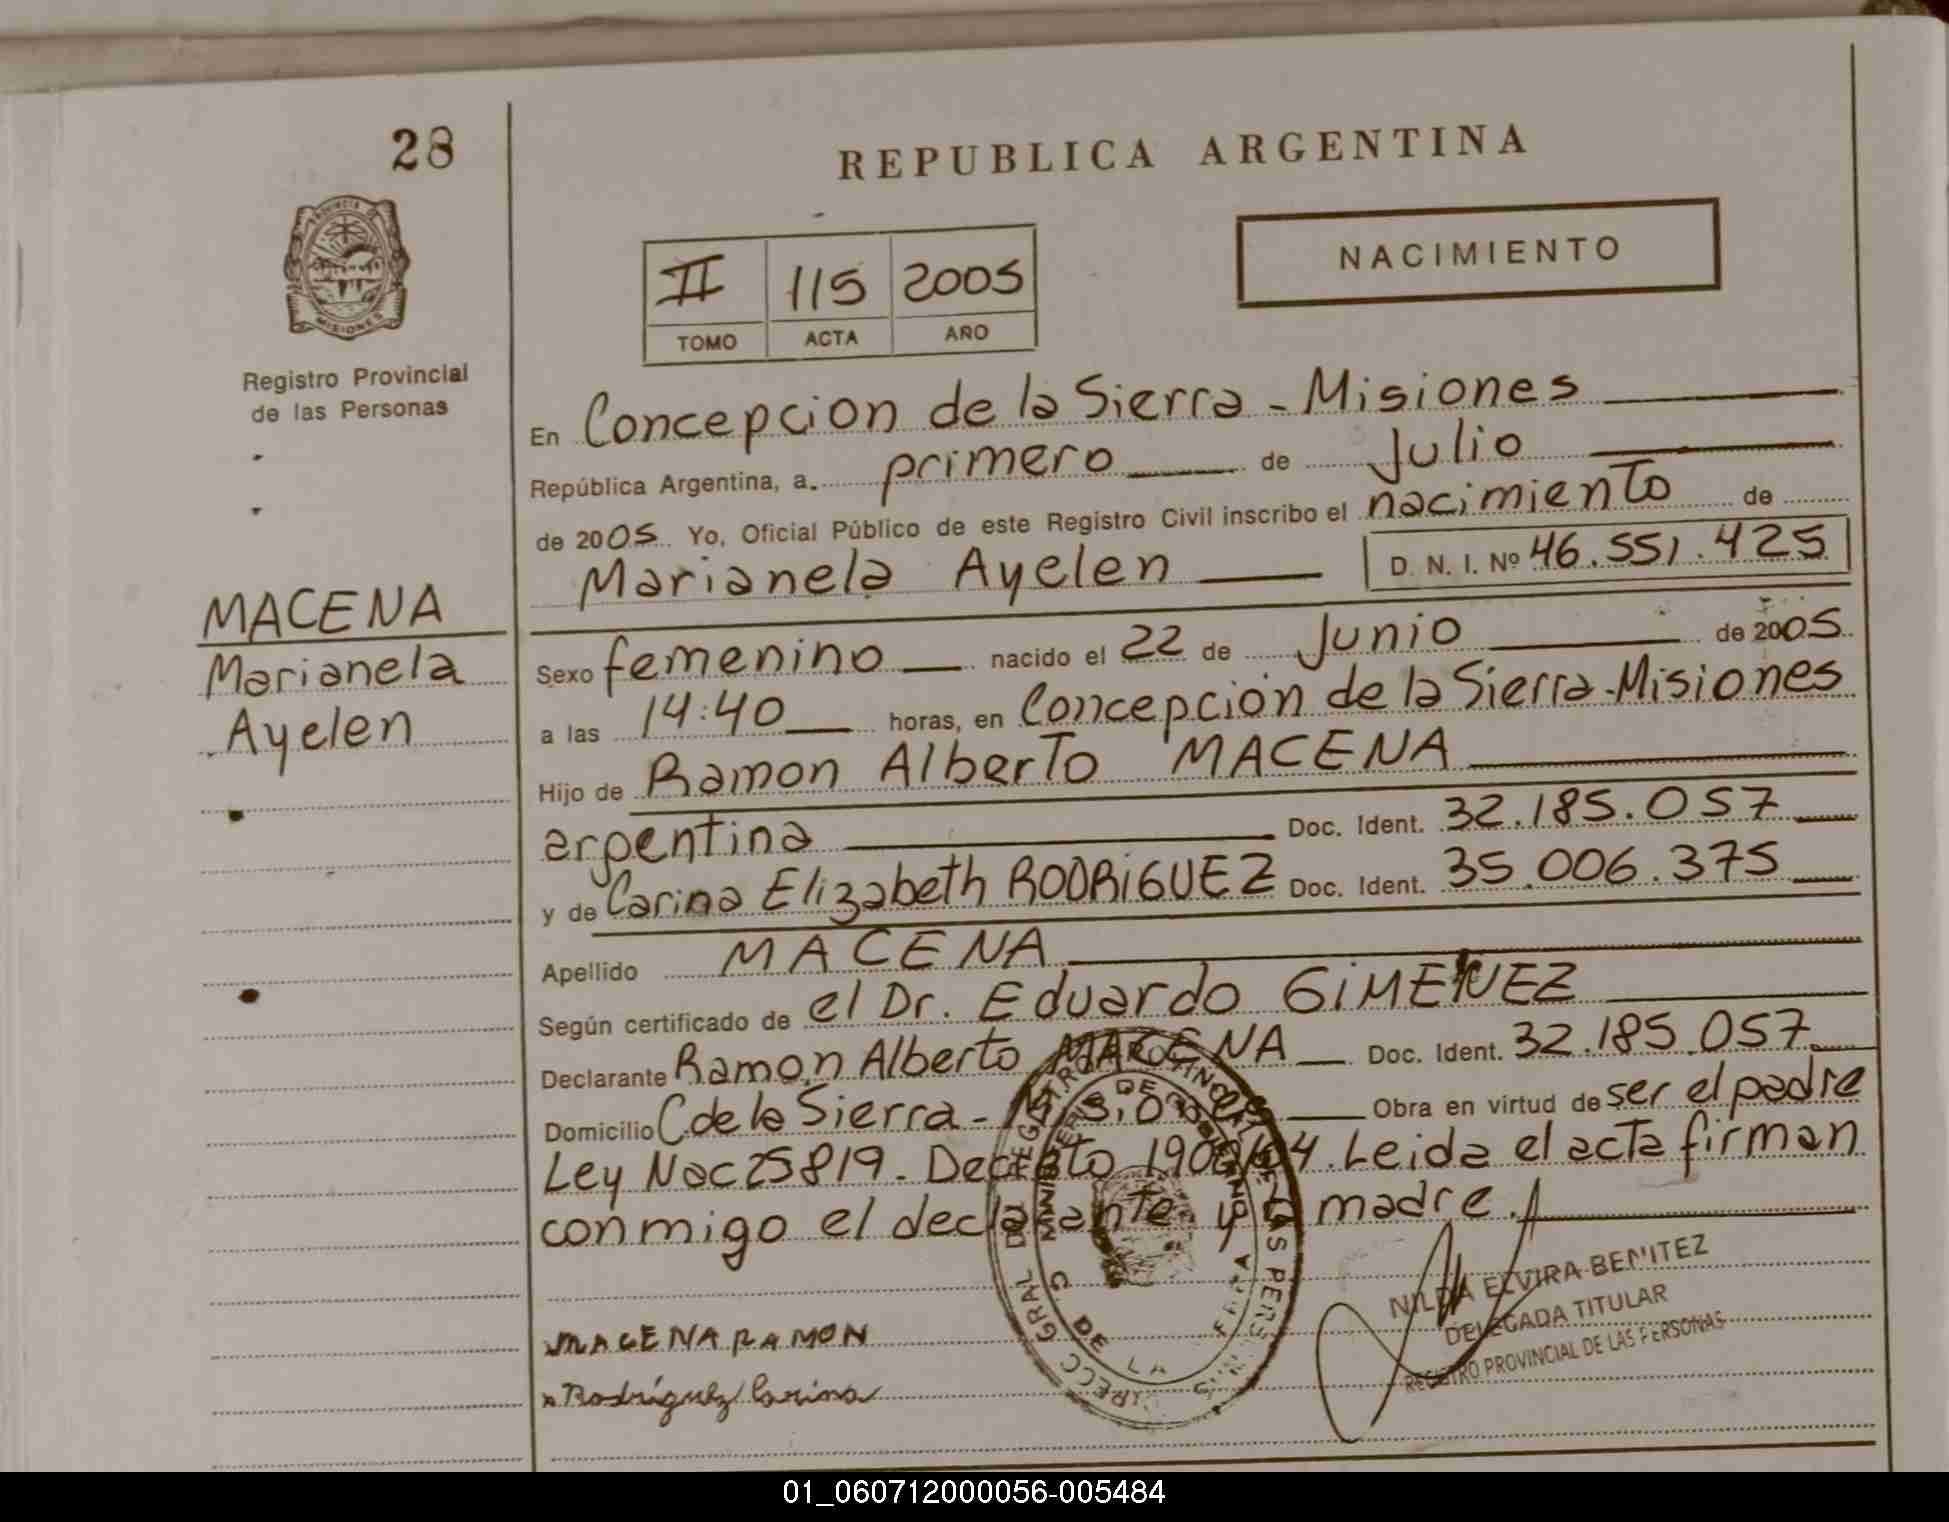 28
REPUBLICA ARGENTINA
PROVINCIA DE
MISIONES
Registro Provincial
de las Personas
II 115 2005
TOMO ACTA AÑO
NACIMIENTO
En Concepcion de la Sierra - Misiones
República Argentina, a. primero de Julio
de 2005. Yo, Oficial Público de este Registro Civil inscribo el nacimiento de
Marianela Ayelen D. N. I. Nº 46.551.425
MACENA
Marianela
Ayelen
Sexo femenino nacido el 22 de Junio de 2005.
a las 14:40 horas, en Concepción de la Sierra-Misiones
Hijo de Ramon Alberto MACENA
argentina Doc. Ident. 32.185.057
y de Carina Elizabeth RODRiGUEZ Doc. Ident. 35.006.375
Apellido MACENA
Según certificado de el Dr. Eduardo GiMENEZ
Declarante Ramon Alberto MACENA Doc. Ident. 32.185.057
Domicilio C de la Sierra - Misiones Obra en virtud de ser el padre
Ley Nac 25819. Decreto Leida el acta firman
conmigo el declarante y la madre.
MACENA RAMON
Rodríguez Carina
NILDA ELVIRA BENITEZ
DELEGADA TITULAR
REGISTRO PROVINCIAL DE LAS PERSONAS
01_060712000056-005484